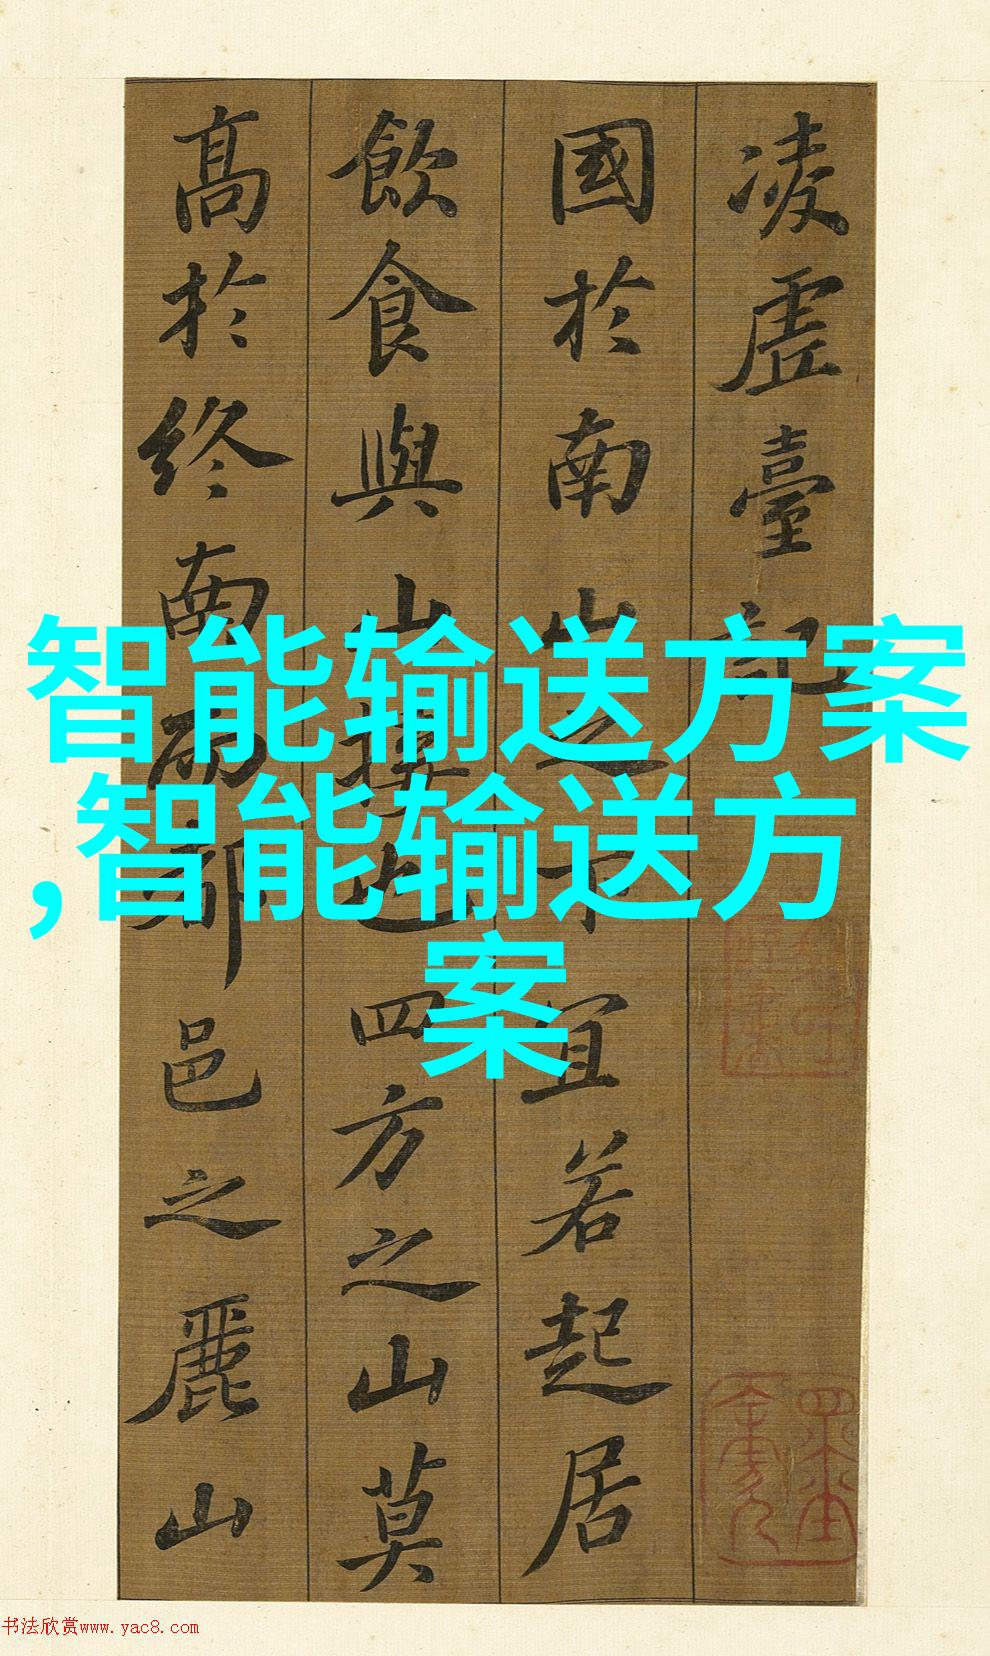 凌虛臺記
國於南山之下宜若起居
飲食與山接也四方之山莫
高於終南而都邑之麗山
智能输送方案
,智能输送方
案
书法欣赏www.yac8.com